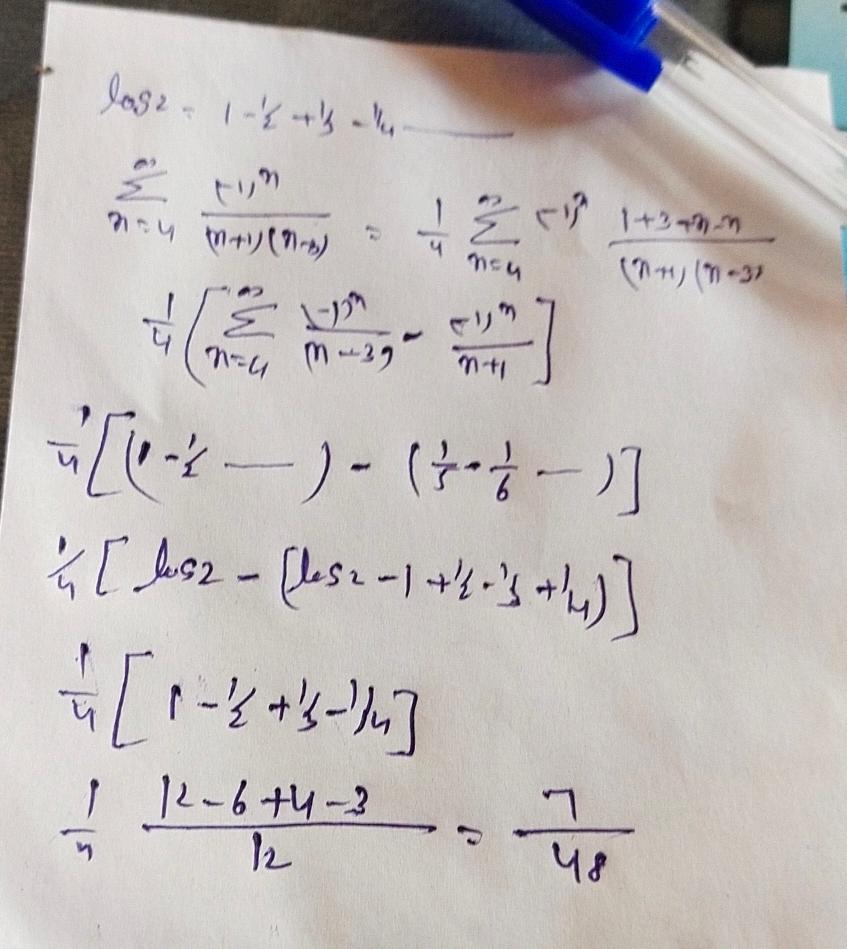 log2 = 1 - 1/2 + 1/3 - 1/4 ———
∞ Σ n=4 (-1)^n / (n+1)(n-3) = 1/4 ∞ Σ n=4 (-1)^n 1+3+n-n / (n+1)(n-3)
1/4 [ ∞ Σ n=4 (-1)^n / (n-3) - (-1)^n / n+1 ]
1/4 [ (1 - 1/2 — ) - ( 1/5 - 1/6 — ) ]
1/4 [ log2 - (log2 - 1 + 1/2 - 1/3 + 1/4) ]
1/4 [ 1 - 1/2 + 1/3 - 1/4 ]
1/4 12-6+4-3 / 12 = 7/48